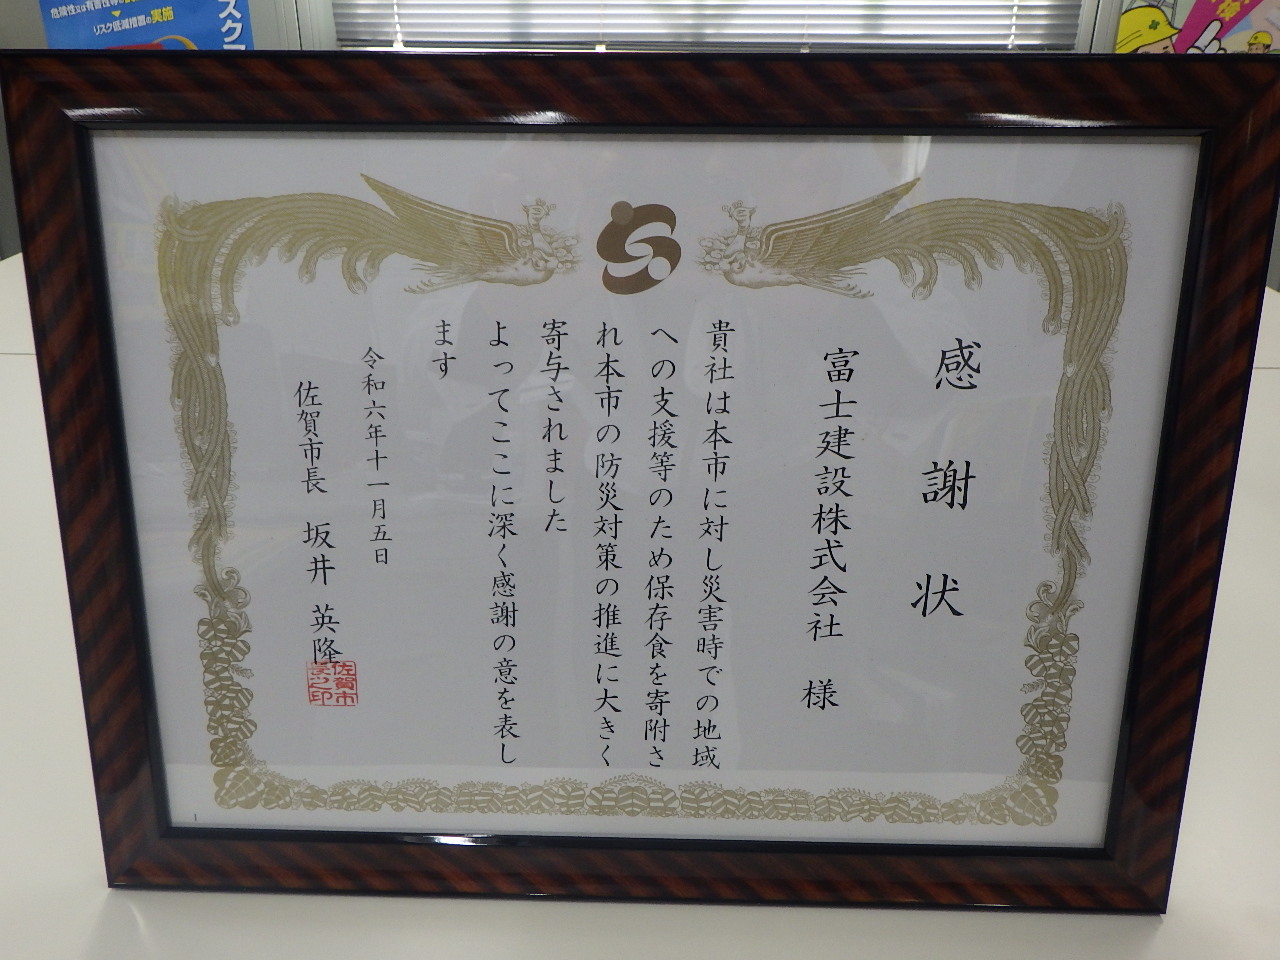 感謝状
富士建設株式会社 様
貴社は本市に対し災害時での地域
への支援等のため保存食を寄附さ
れ本市の防災対策の推進に大きく
寄与されました
よってここに深く感謝の意を表し
ます
令和六年十一月五日
佐賀市長 坂井 英隆
佐賀市
長之印
リスク低減措置の実施
スク